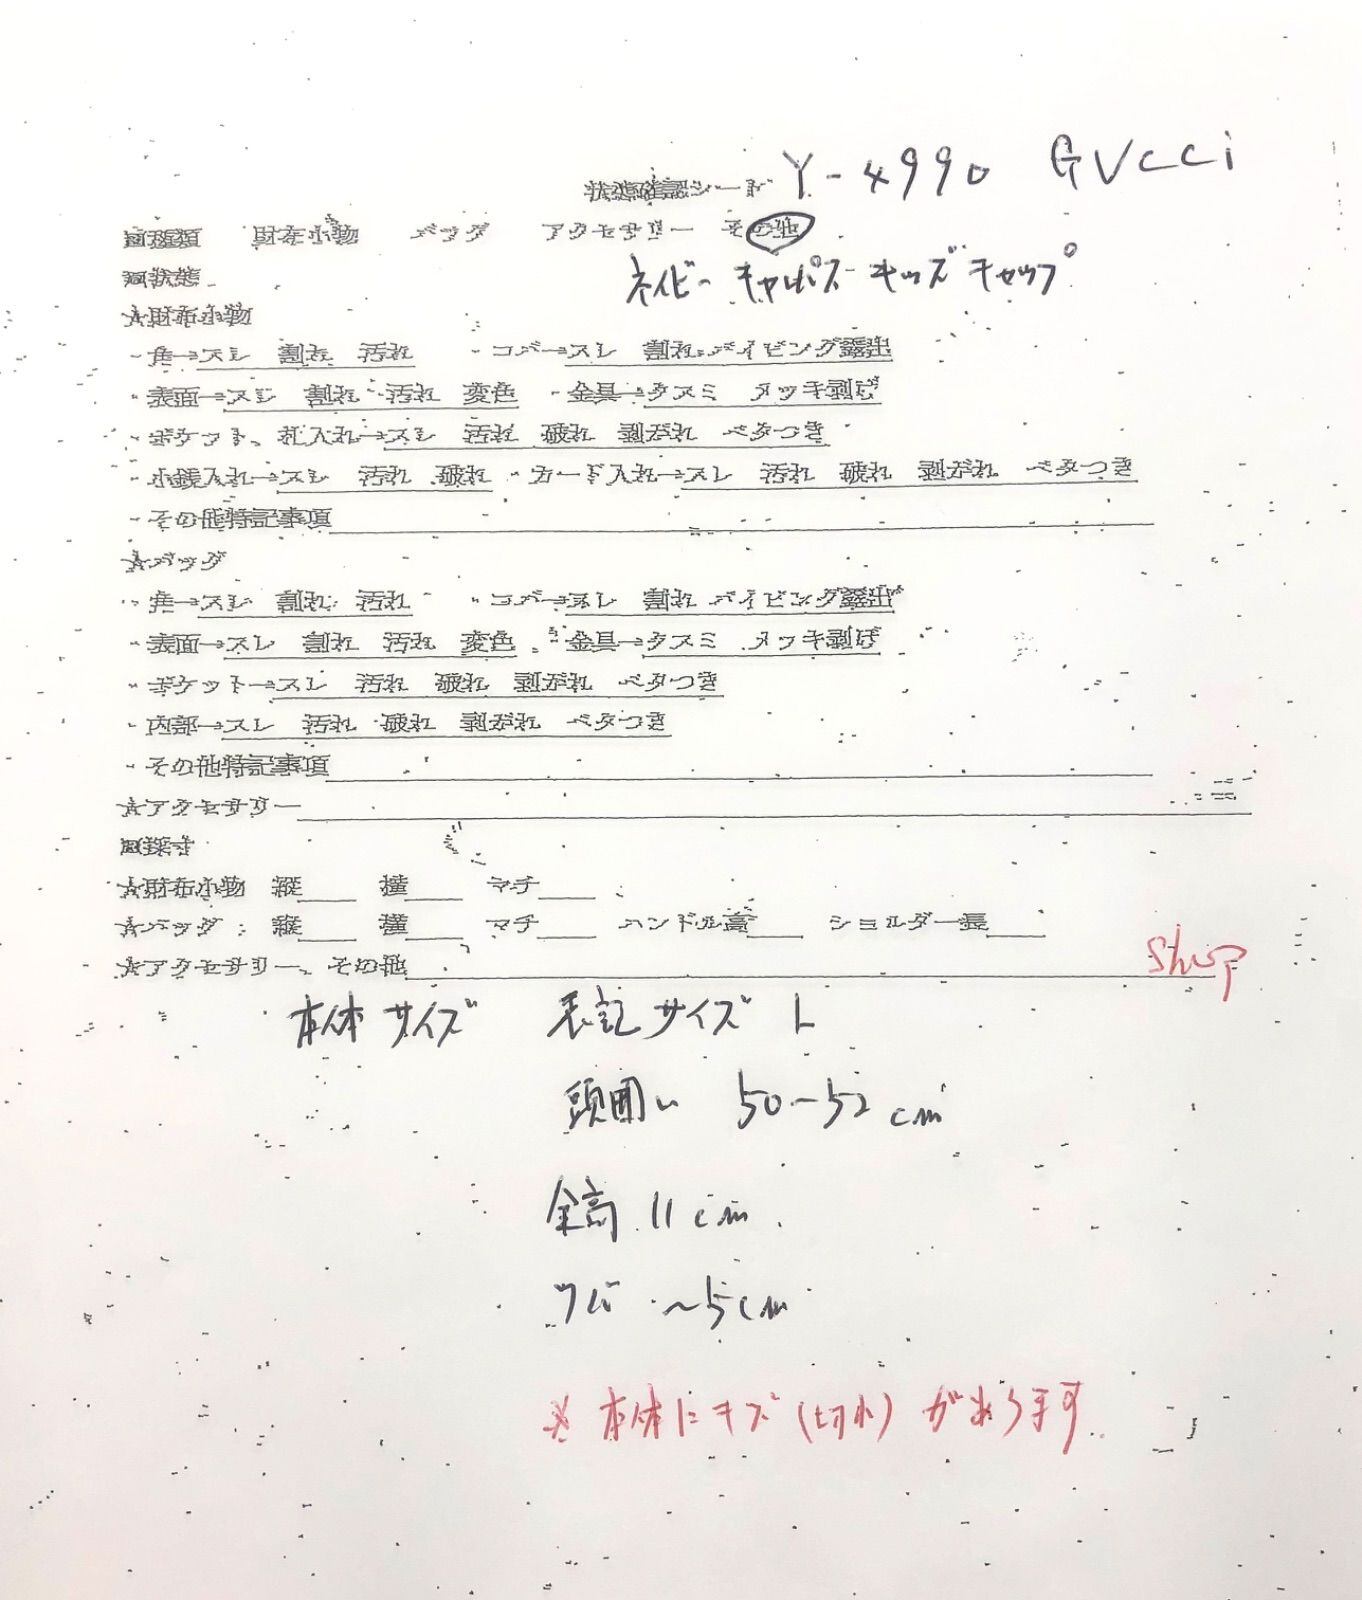 状態確認シート Y-4990 GUCCI
□種類 財布小物 バッグ アクセサリー その他
ネイビー キャンバス キッズ キャップ
□状態
☆財布小物
・角→スレ 割れ 汚れ ・コバ→スレ 割れ パイピング露出
・表面→スレ 割れ 汚れ 変色 ・金具→クスミ メッキ剥げ
・ポケット、札入れ→スレ 汚れ 破れ 剥がれ ベタつき
・小銭入れ→スレ 汚れ 破れ ・カード入れ→スレ 汚れ 破れ 剥がれ ベタつき
・その他特記事項
☆バッグ
・角→スレ 割れ 汚れ ・コバ→スレ 割れ パイピング露出
・表面→スレ 割れ 汚れ 変色 ・金具→クスミ メッキ剥げ
・ポケット→スレ 汚れ 破れ 剥がれ ベタつき
・内部→スレ 汚れ 破れ 剥がれ ベタつき
・その他特記事項
☆アクセサリー
□採寸
☆財布小物 縦 横 マチ
☆バッグ 縦 横 マチ ハンドル高 ショルダー長
☆アクセサリー、その他
Shop
本体サイズ 表記サイズ L
頭囲い 50〜52cm
全高 11cm
ツバ 〜5cm
※本体にキズ(切れ)があります